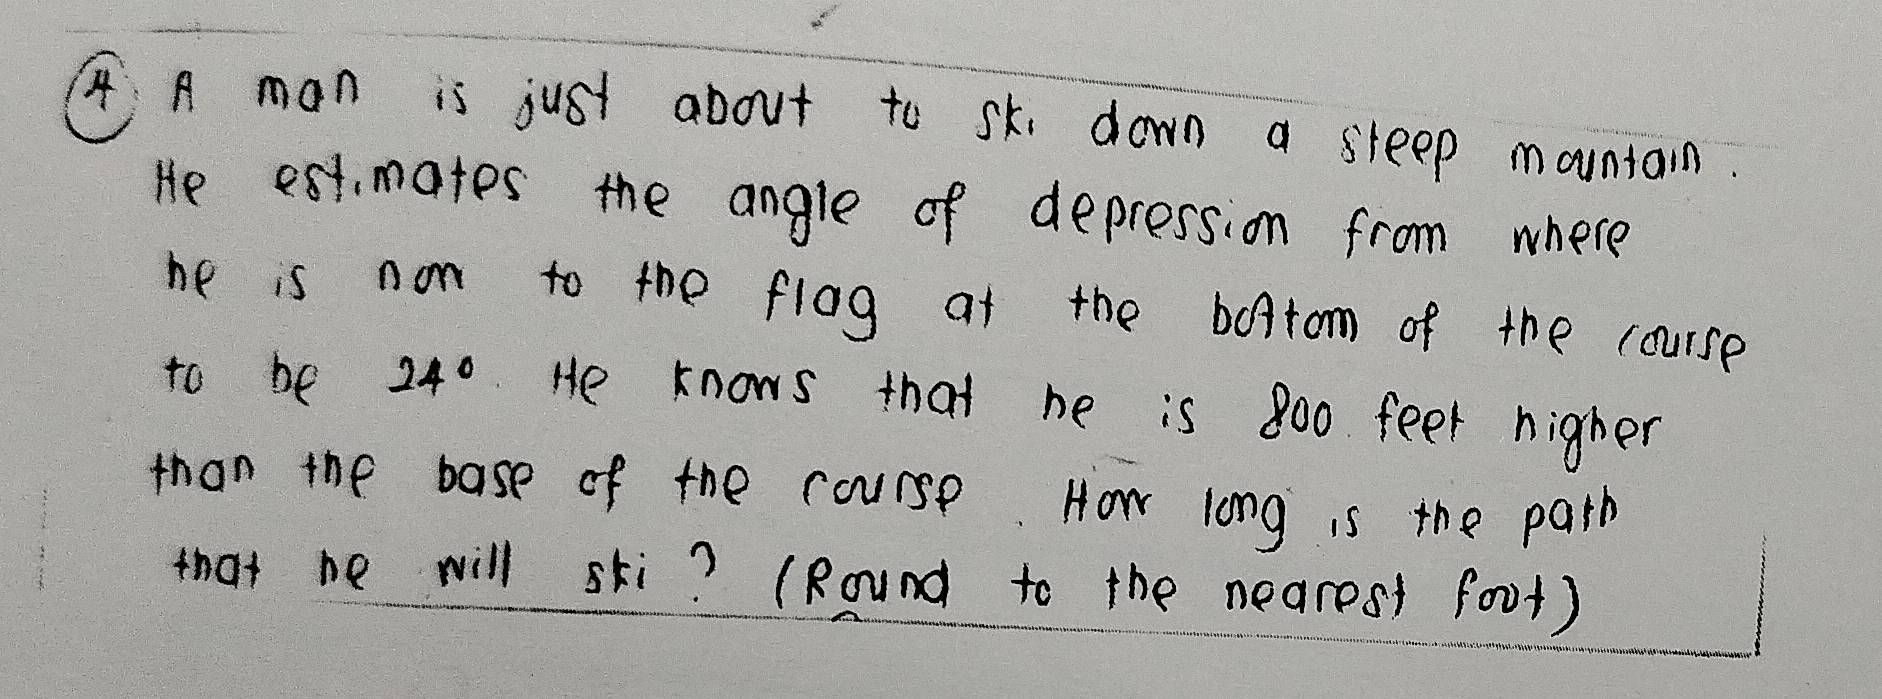 4 A man is just about to ski down a steep mountain.
He estimates the angle of depression from where
he is now to the flag at the bottom of the course
to be 24°. He knows that he is 800 feet higher
than the base of the course. How long is the path
that he will ski? (Round to the nearest foot)